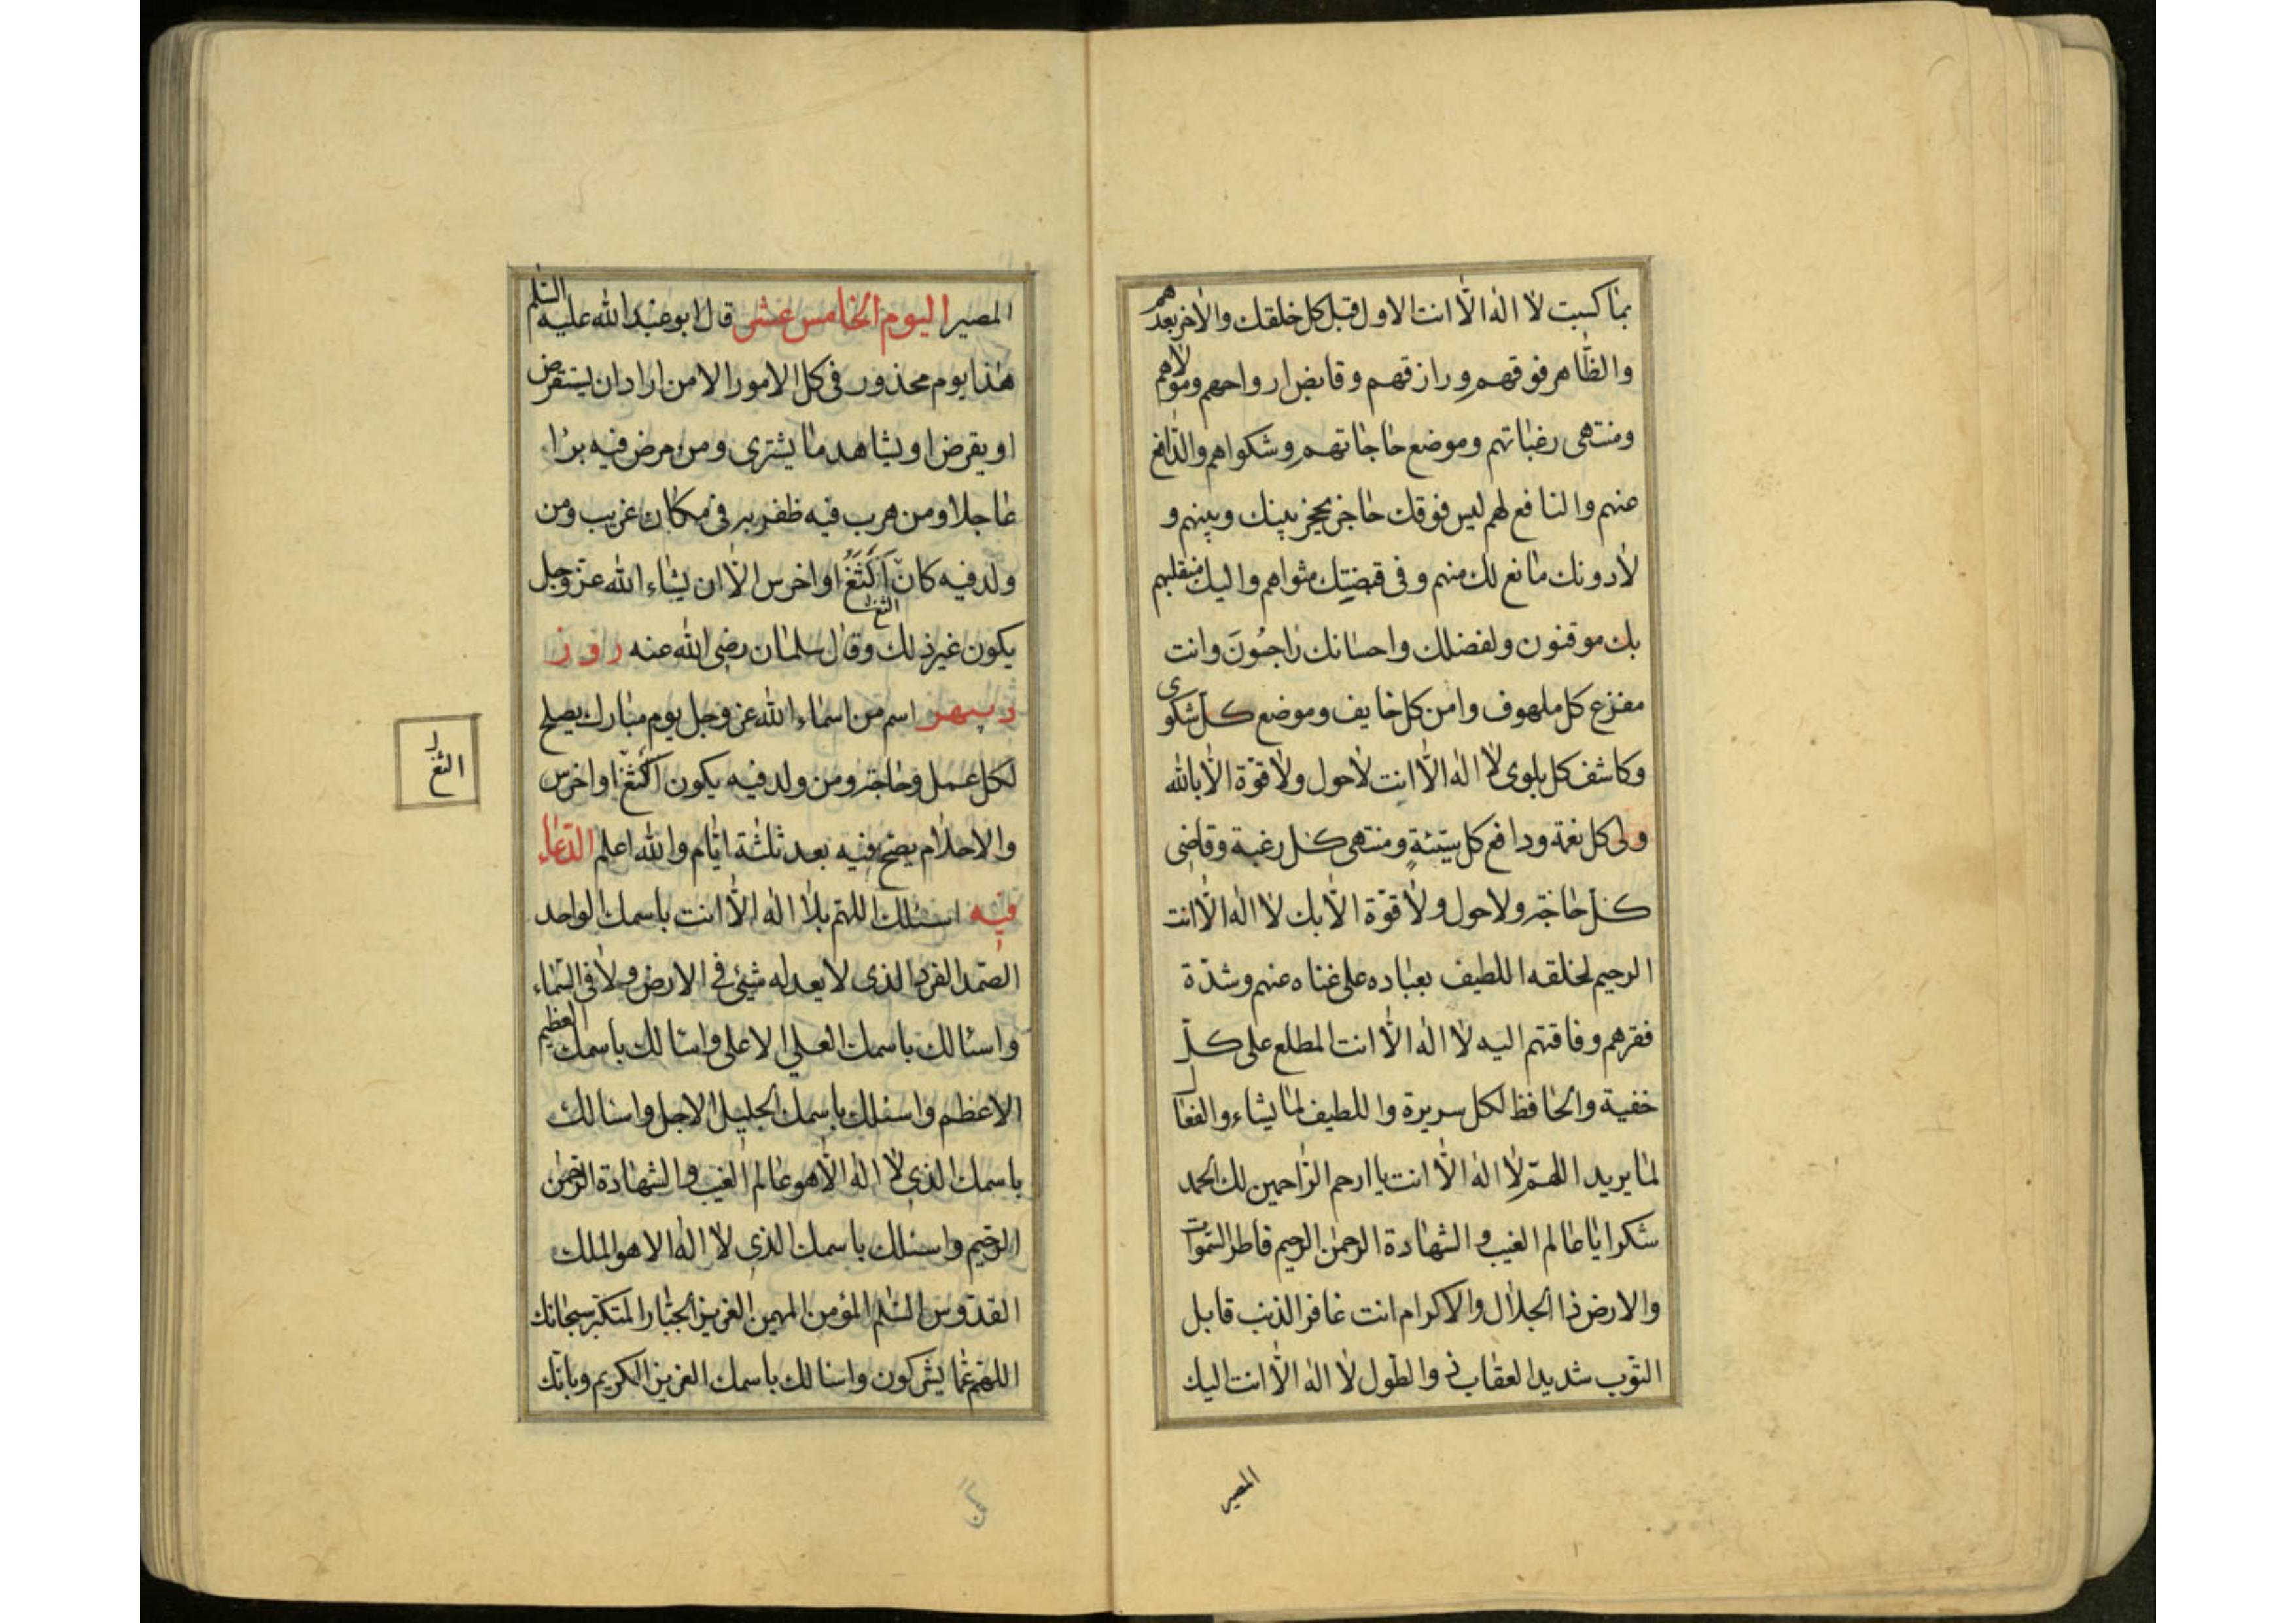 بما كسبت لا اله الا انت الاول قبل كل خلقك والاخر بعدهم
والظاهر فوقهم ورازقهم وقابض ارواحهم ومولاهم
ومنتهى رغباتهم وموضع حاجاتهم وشكواهم والدافع
عنهم والنافع لهم ليس فوقك حاجز يحجز بينك وبينهم و
لا دونك مانع لك منهم وفى قبضتك مثواهم واليك منقلبهم
بك موقنون ولفضلك واحسانك راجون وانت
مفزع كل ملهوف وامن كل خايف وموضع كل شكوى
وكاشف كل بلوى لا اله الا انت لا حول ولا قوة الا بالله
ولى كل نعمة ودافع كل سيئة ومنتهى كل رغبة وقاضى
كل حاجة ولا حول ولا قوة الا بك لا اله الا انت
الرحيم لخلقه اللطيف بعباده على غناه عنهم وشدة
فقرهم وفاقتهم اليه لا اله الا انت المطلع على كل
خفية والحافظ لكل سريرة واللطيف لما يشاء والفعال
لما يريد اللهم لا اله الا انت يا ارحم الراحمين لك الحمد
شكرا يا عالم الغيب والشهادة الرحمن الرحيم فاطر السموات
والارض ذا الجلال والاكرام انت غافر الذنب قابل
التوب شديد العقاب ذى الطول لا اله الا انت اليك
المصير
المصير اليوم الخامس عشر قال ابو عبد الله عليه السلم
هذا يوم محذور فى كل الامور الا من اراد ان يستقرض
او يقرض او يشاهد ما يشترى ومن مرض فيه برأ
عاجلا ومن هرب فيه ظفر به فى مكان غريب ومن
ولد فيه كان الثغ او اخرس الا ان يشاء الله عز وجل
الثغ
يكون غير ذلك وقال سلمان رضى الله عنه روز
ديبمهر اسم من اسماء الله عز وجل يوم مبارك يصلح
لكل عمل وحاجة ومن ولد فيه يكون الثغا واخرس
الثغ
والاحلام يصح فيه بعد ثلثة ايام والله اعلم الدعاء
فيه اسئلك اللهم بلا اله الا انت باسمك الواحد
الصمد الفرد الذى لا يعدله شيئ فى الارض ولا فى السماء
واسئالك باسمك العلى الاعلى واسئالك باسمك العظيم
الاعظم واسئلك باسمك الجليل الاجل واسئالك
باسمك الذى لا اله الا هو عالم الغيب والشهادة الرحمن
الرحيم واسئلك باسمك الذى لا اله الا هو الملك
القدوس السلم المؤمن المهيمن العزيز الجبار المتكبر سبحانك
اللهم عما يشركون واسئالك باسمك العزيز الكريم وبانك